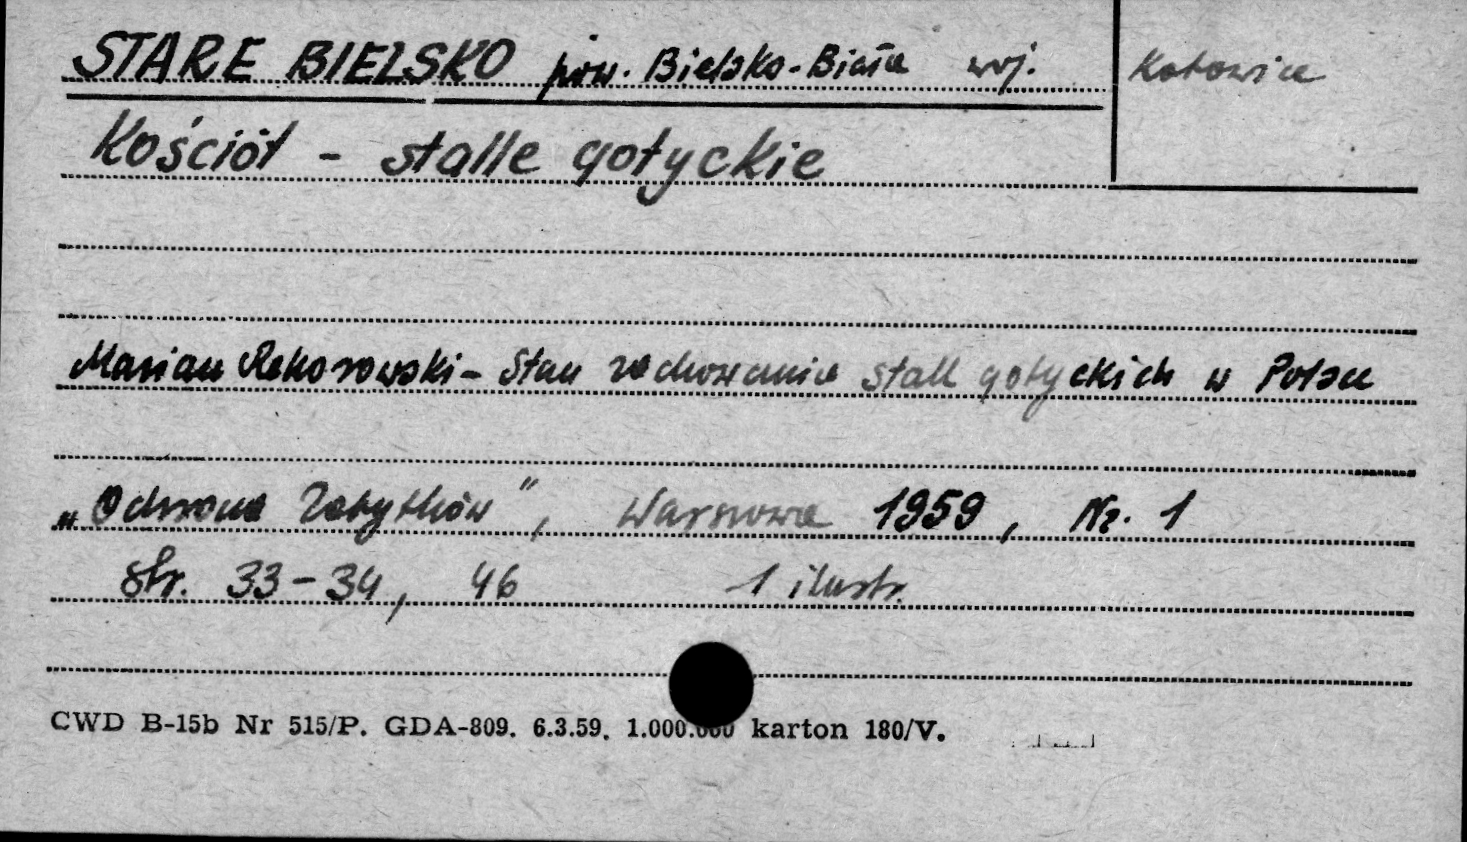 STARE BIELSKO pow. Bielsko-Biała woj. Katowice
Kościół - stalle gotyckie
Marian Rekorowski - Stan zachowania stall gotyckich w Polsce
„Ochrona Zabytków", Warszawa 1959, Nr. 1
str. 33-34, 46 1 ilustr.
CWD B-15b Nr 515/P. GDA-809. 6.3.59. 1.000.000 karton 180/V.